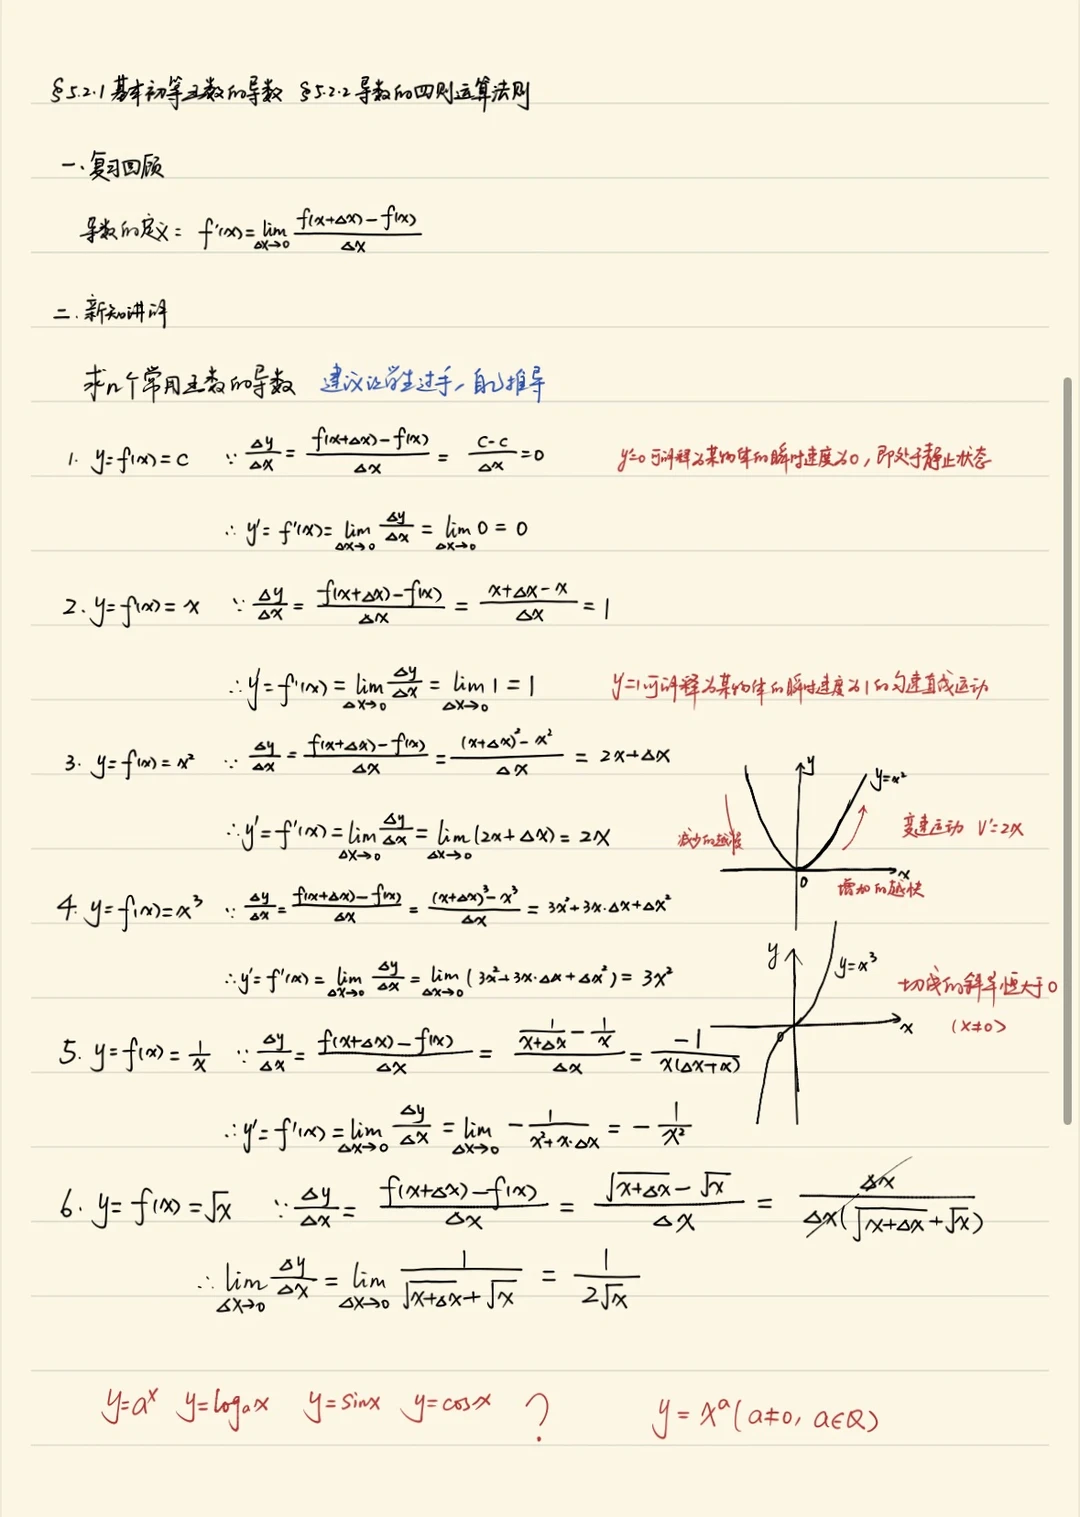 §5.2.1 基本初等函数的导数 §5.2.2 导数的四则运算法则
一.复习回顾
导数的定义: f'(x)=lim_{Δx→0} \frac{f(x+Δx)-f(x)}{Δx}
二.新知讲解
求几个常用函数的导数 建议让学生过手,自己推导
1. y=f(x)=c ∵ \frac{Δy}{Δx}=\frac{f(x+Δx)-f(x)}{Δx}=\frac{c-c}{Δx}=0 y'=0可解释为某物体的瞬时速度为0,即处于静止状态
∴ y'=f'(x)=lim_{Δx→0} \frac{Δy}{Δx}=lim_{Δx→0} 0=0
2. y=f(x)=x ∵ \frac{Δy}{Δx}=\frac{f(x+Δx)-f(x)}{Δx}=\frac{x+Δx-x}{Δx}=1
∴ y'=f'(x)=lim_{Δx→0} \frac{Δy}{Δx}=lim_{Δx→0} 1=1 y'=1可解释为某物体的瞬时速度为1的匀速直线运动
3. y=f(x)=x² ∵ \frac{Δy}{Δx}=\frac{f(x+Δx)-f(x)}{Δx}=\frac{(x+Δx)²-x²}{Δx}=2x+Δx
y
y=x²
∴ y'=f'(x)=lim_{Δx→0} \frac{Δy}{Δx}=lim_{Δx→0}(2x+Δx)=2x
减少的越慢
变速运动 V'=2x
x
0
增加的越快
4. y=f(x)=x³ ∵ \frac{Δy}{Δx}=\frac{f(x+Δx)-f(x)}{Δx}=\frac{(x+Δx)³-x³}{Δx}=3x²+3x·Δx+Δx²
y
y=x³
∴ y'=f'(x)=lim_{Δx→0} \frac{Δy}{Δx}=lim_{Δx→0}(3x²+3x·Δx+Δx²)=3x²
切线的斜率恒大于0
(x≠0)
x
0
5. y=f(x)=\frac{1}{x} ∵ \frac{Δy}{Δx}=\frac{f(x+Δx)-f(x)}{Δx}=\frac{\frac{1}{x+Δx}-\frac{1}{x}}{Δx}=\frac{-1}{x(Δx+x)}
∴ y'=f'(x)=lim_{Δx→0} \frac{Δy}{Δx}=lim_{Δx→0} -\frac{1}{x²+x·Δx}=-\frac{1}{x²}
6. y=f(x)=√x ∵ \frac{Δy}{Δx}=\frac{f(x+Δx)-f(x)}{Δx}=\frac{\sqrt{x+Δx}-\sqrt{x}}{Δx}=\frac{Δx}{Δx(\sqrt{x+Δx}+\sqrt{x})}
∴ lim_{Δx→0} \frac{Δy}{Δx}=lim_{Δx→0} \frac{1}{\sqrt{x+Δx}+\sqrt{x}}=\frac{1}{2\sqrt{x}}
y=aˣ y=logₐx y=sinx y=cosx ? y=xᵃ(a≠0, a∈Q)